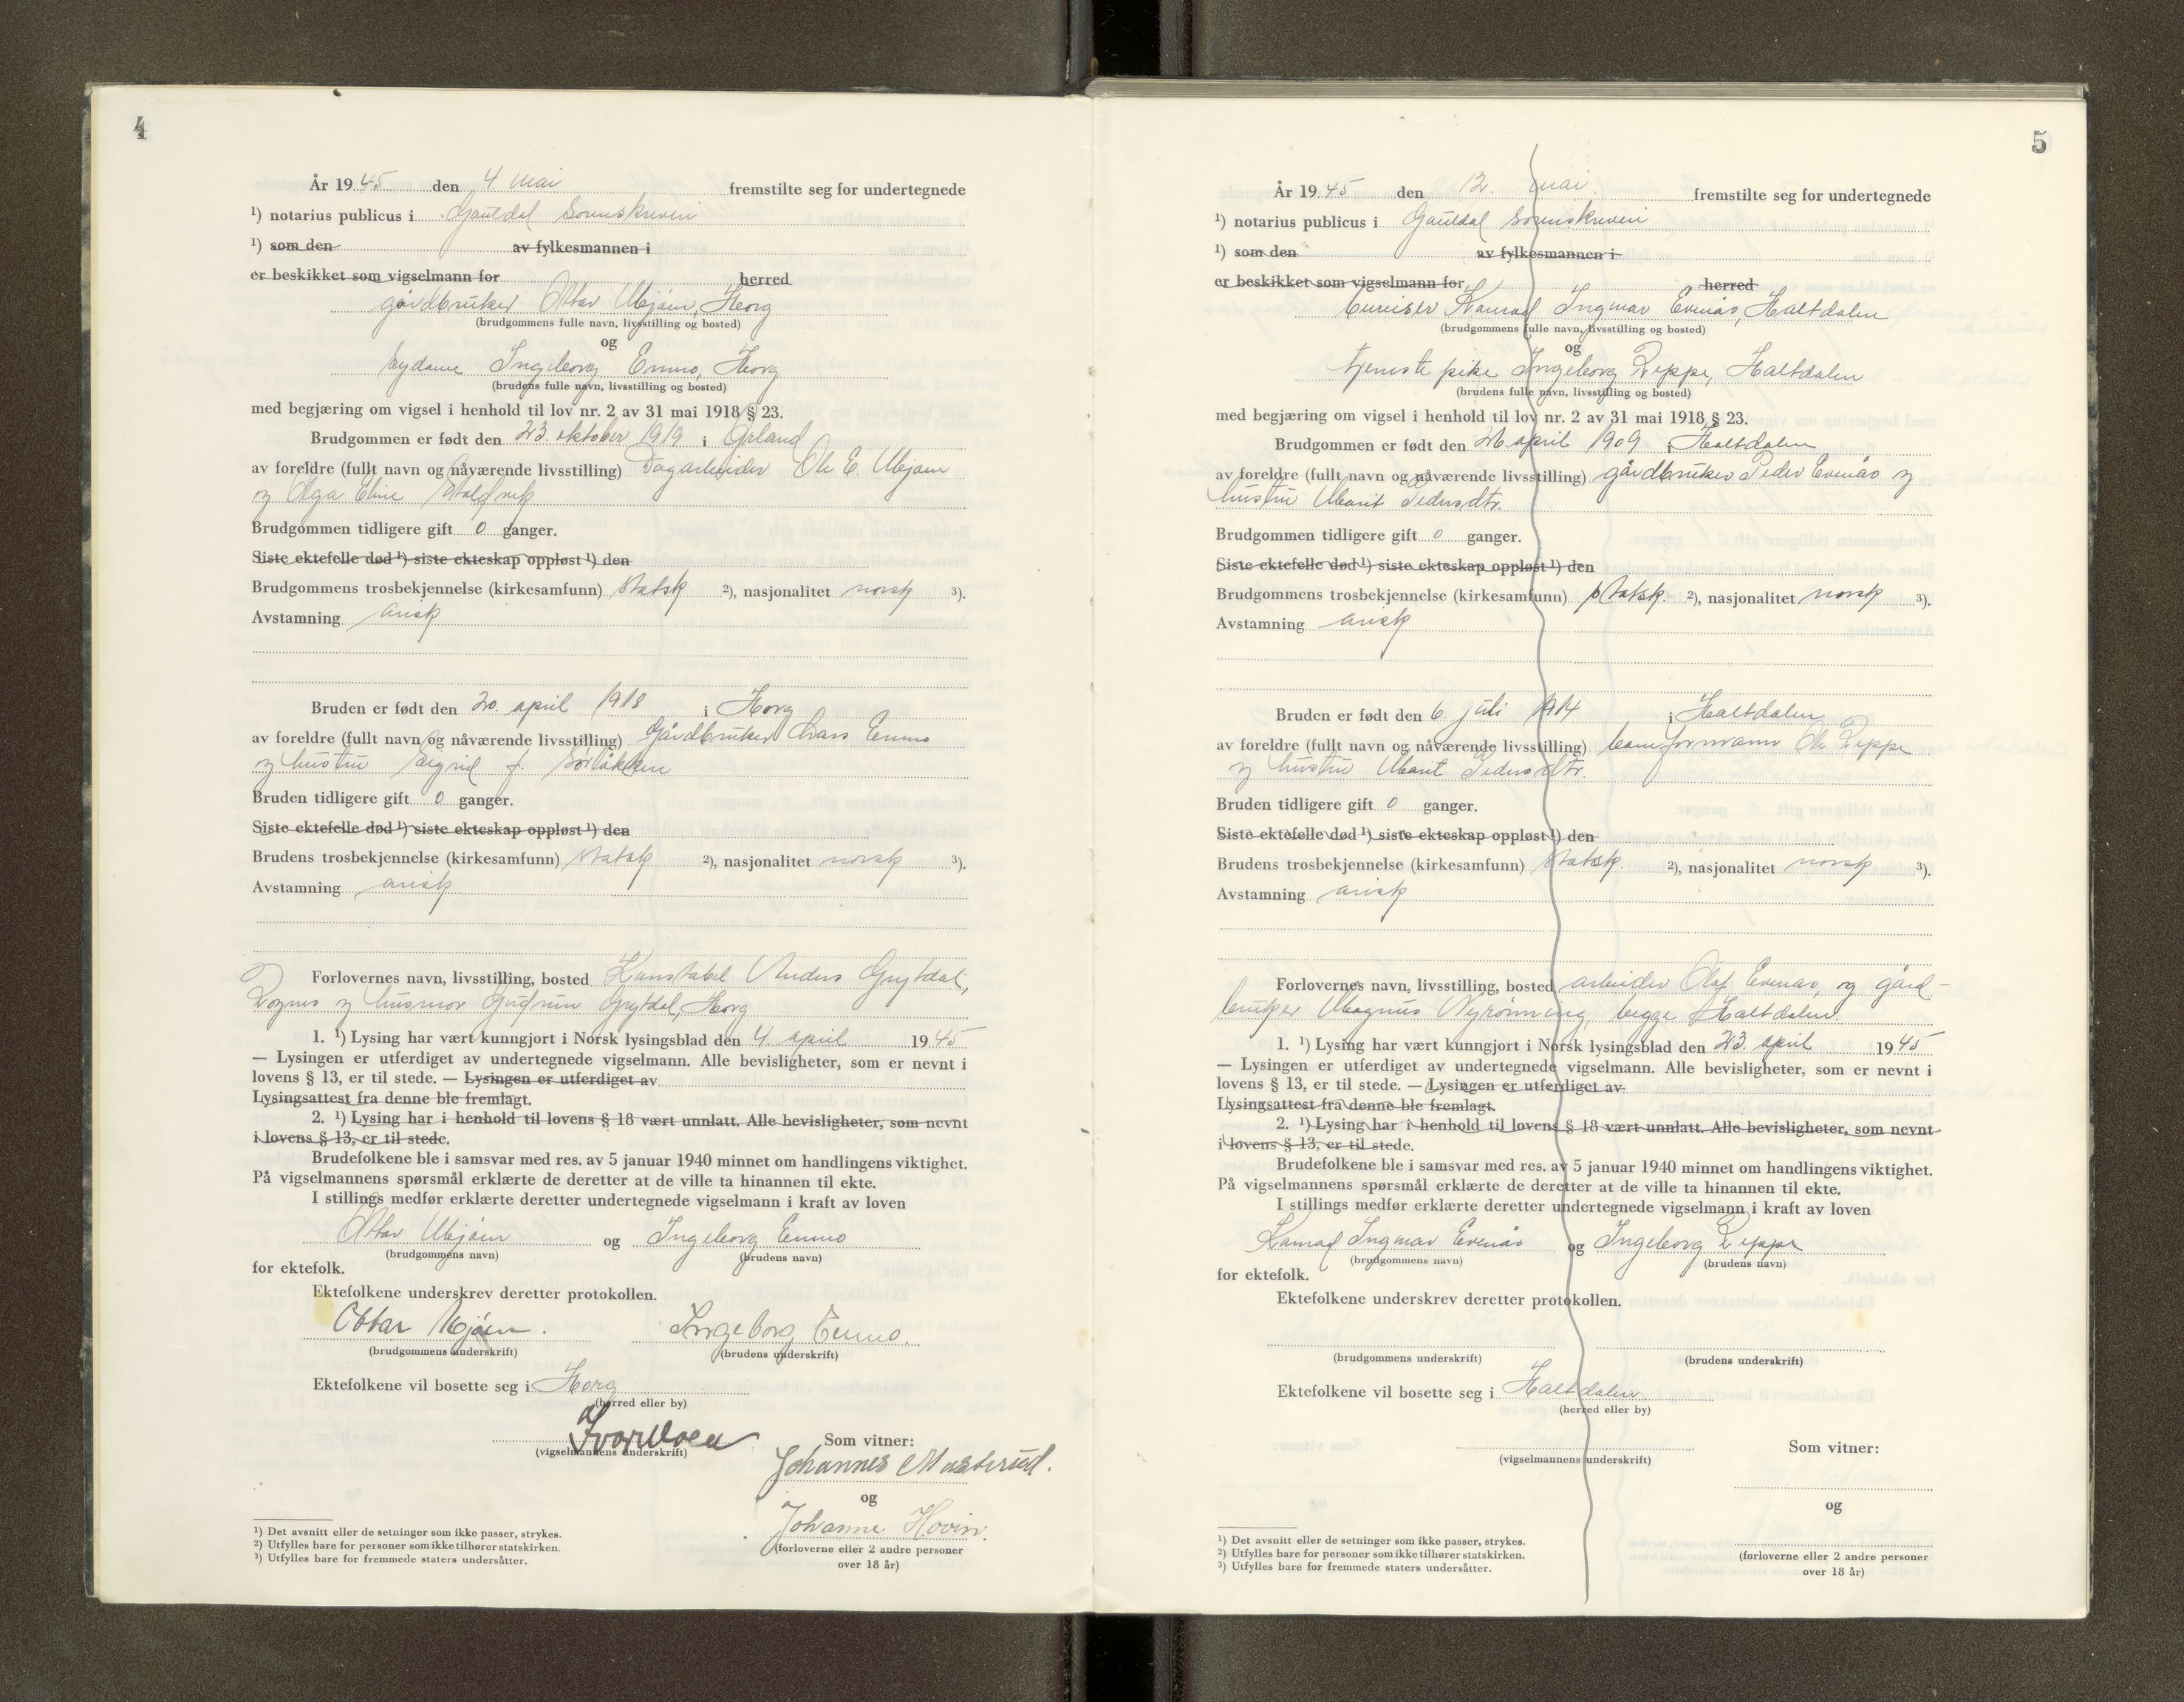 4
År 1945 den 4 mai fremstilte seg for undertegnede
¹) notarius publicus i Gauldal Sorenskriveri
¹) som den av fylkesmannen i
er beskikket som vigselmann for herred
gårdbruker Ottar Mjøen, Horg
(brudgommens fulle navn, livsstilling og bosted)
og
sydame Ingeborg Enmo, Horg
(brudens fulle navn, livsstilling og bosted)
med begjæring om vigsel i henhold til lov nr. 2 av 31 mai 1918 § 23.
Brudgommen er født den 23. oktober 1919 i Ørland
av foreldre (fullt navn og nåværende livsstilling) Dagarbeider Ole E. Mjøen
og Olga Eline
Brudgommen tidligere gift 0 ganger.
Siste ektefelle død ¹) siste ekteskap oppløst ¹) den
Brudgommens trosbekjennelse (kirkesamfunn) Statsk ²), nasjonalitet norsk ³).
Avstamning arisk
Bruden er født den 20. april 1918 i Horg
av foreldre (fullt navn og nåværende livsstilling) Gårdbruker Lars Enmo
og hustru Sigrid f.
Bruden tidligere gift 0 ganger.
Siste ektefelle død ¹) siste ekteskap oppløst ¹) den
Brudens trosbekjennelse (kirkesamfunn) Statsk ²), nasjonalitet norsk ³).
Avstamning arisk
Forlovernes navn, livsstilling, bosted Konstabel Anders Grytdal,
Rognes og husmor Gudrun Grytdal, Horg
1. ¹) Lysing har vært kunngjort i Norsk lysingsblad den 4. april 1945
— Lysingen er utferdiget av undertegnede vigselmann. Alle bevisligheter, som er nevnt i
lovens § 13, er til stede. — Lysingen er utferdiget av
Lysingsattest fra denne ble fremlagt.
2. ¹) Lysing har i henhold til lovens § 18 vært unnlatt. Alle bevisligheter, som nevnt
i lovens § 13, er til stede.
Brudefolkene ble i samsvar med res. av 5 januar 1940 minnet om handlingens viktighet.
På vigselmannens spørsmål erklærte de deretter at de ville ta hinannen til ekte.
I stillings medfør erklærte deretter undertegnede vigselmann i kraft av loven
Ottar Mjøen og Ingeborg Enmo
(brudgommens navn) (brudens navn)
for ektefolk.
Ektefolkene underskrev deretter protokollen.
Ottar Mjøen. Ingeborg Enmo.
(brudgommens underskrift) (brudens underskrift)
Ektefolkene vil bosette seg i Horg
(herred eller by)
(vigselmannens underskrift)
Som vitner:
Johannes Masterud.
og
Johanne Hovin.
(forloverne eller 2 andre personer
over 18 år)
¹) Det avsnitt eller de setninger som ikke passer, strykes.
²) Utfylles bare for personer som ikke tilhører statskirken.
³) Utfylles bare for fremmede staters undersåtter.
5
År 1945 den 12. mai. fremstilte seg for undertegnede
¹) notarius publicus i Gauldal Sorenskriveri
¹) som den av fylkesmannen i
er beskikket som vigselmann for herred
bureiser Konrad Ingmar Evenås, Haltdalen
(brudgommens fulle navn, livsstilling og bosted)
og
tjeneste pike Ingeborg Reppe, Haltdalen
(brudens fulle navn, livsstilling og bosted)
med begjæring om vigsel i henhold til lov nr. 2 av 31 mai 1918 § 23.
Brudgommen er født den 26. april 1909 i Haltdalen
av foreldre (fullt navn og nåværende livsstilling) gårdbruker Peder Evenås og
hustru Marit Pedersdtr.
Brudgommen tidligere gift 0 ganger.
Siste ektefelle død ¹) siste ekteskap oppløst ¹) den
Brudgommens trosbekjennelse (kirkesamfunn) Statsk. ²), nasjonalitet norsk ³).
Avstamning arisk
Bruden er født den 6. juli 1914 i Haltdalen
av foreldre (fullt navn og nåværende livsstilling) baneformann Ole Reppe
og hustru Marit Pedersdtr.
Bruden tidligere gift 0 ganger.
Siste ektefelle død ¹) siste ekteskap oppløst ¹) den
Brudens trosbekjennelse (kirkesamfunn) Statsk. ²), nasjonalitet norsk ³).
Avstamning arisk
Forlovernes navn, livsstilling, bosted arbeider Olaf Evenås, og gård-
bruker Magnus Nyrønning, begge Haltdalen.
1. ¹) Lysing har vært kunngjort i Norsk lysingsblad den 23. april 1945
— Lysingen er utferdiget av undertegnede vigselmann. Alle bevisligheter, som er nevnt i
lovens § 13, er til stede. — Lysingen er utferdiget av
Lysingsattest fra denne ble fremlagt.
2. ¹) Lysing har i henhold til lovens § 18 vært unnlatt. Alle bevisligheter, som nevnt
i lovens § 13, er til stede.
Brudefolkene ble i samsvar med res. av 5 januar 1940 minnet om handlingens viktighet.
På vigselmannens spørsmål erklærte de deretter at de ville ta hinannen til ekte.
I stillings medfør erklærte deretter undertegnede vigselmann i kraft av loven
Konrad Ingmar Evenås og Ingeborg Reppe
(brudgommens navn) (brudens navn)
for ektefolk.
Ektefolkene underskrev deretter protokollen.
(brudgommens underskrift) (brudens underskrift)
Ektefolkene vil bosette seg i Haltdalen
(herred eller by)
(vigselmannens underskrift)
Som vitner:
og
(forloverne eller 2 andre personer
over 18 år)
¹) Det avsnitt eller de setninger som ikke passer, strykes.
²) Utfylles bare for personer som ikke tilhører statskirken.
³) Utfylles bare for fremmede staters undersåtter.